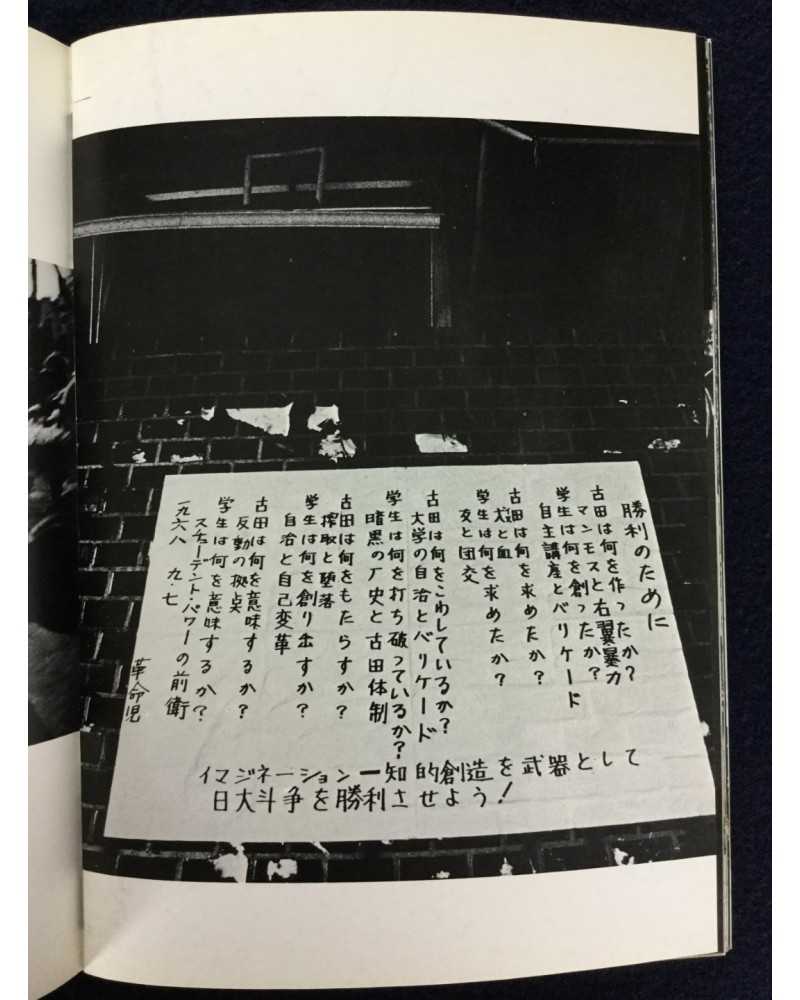 勝利のために
古田は何を作ったか？
マンモスと右翼暴力
学生は何を創ったか？
自主講座とバリケード
古田は何を求めたか？
犬と血
学生は何を求めたか？
友と団交
古田は何をこわしているか？
大学の自治とバリケード
学生は何を打ち破っているか？
暗黒の厂史と古田体制
古田は何をもたらすか？
搾取と堕落
学生は何を創り出すか？
自治と自己変革
古田は何を意味するか？
反動の拠点
学生は何を意味するか？
スチューデント・パワーの前衛
一九六八 九・七
革命児
イマジネーション―知的創造を武器として
日大斗争を勝利させよう！